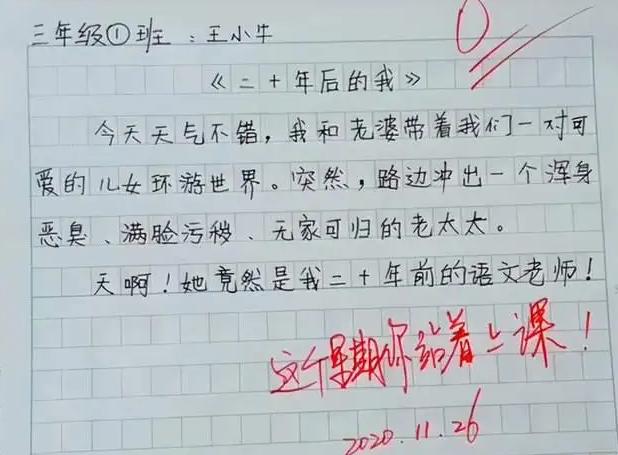 三年级①班：王小牛
0
《二十年后的我》
今天天气不错，我和老婆带着我们一对可
爱的儿女环游世界。突然，路边冲出一个浑身
恶臭、满脸污秽、无家可归的老太太。
天啊！她竟然是我二十年前的语文老师！
这个星期你站着上课！
2020.11.26